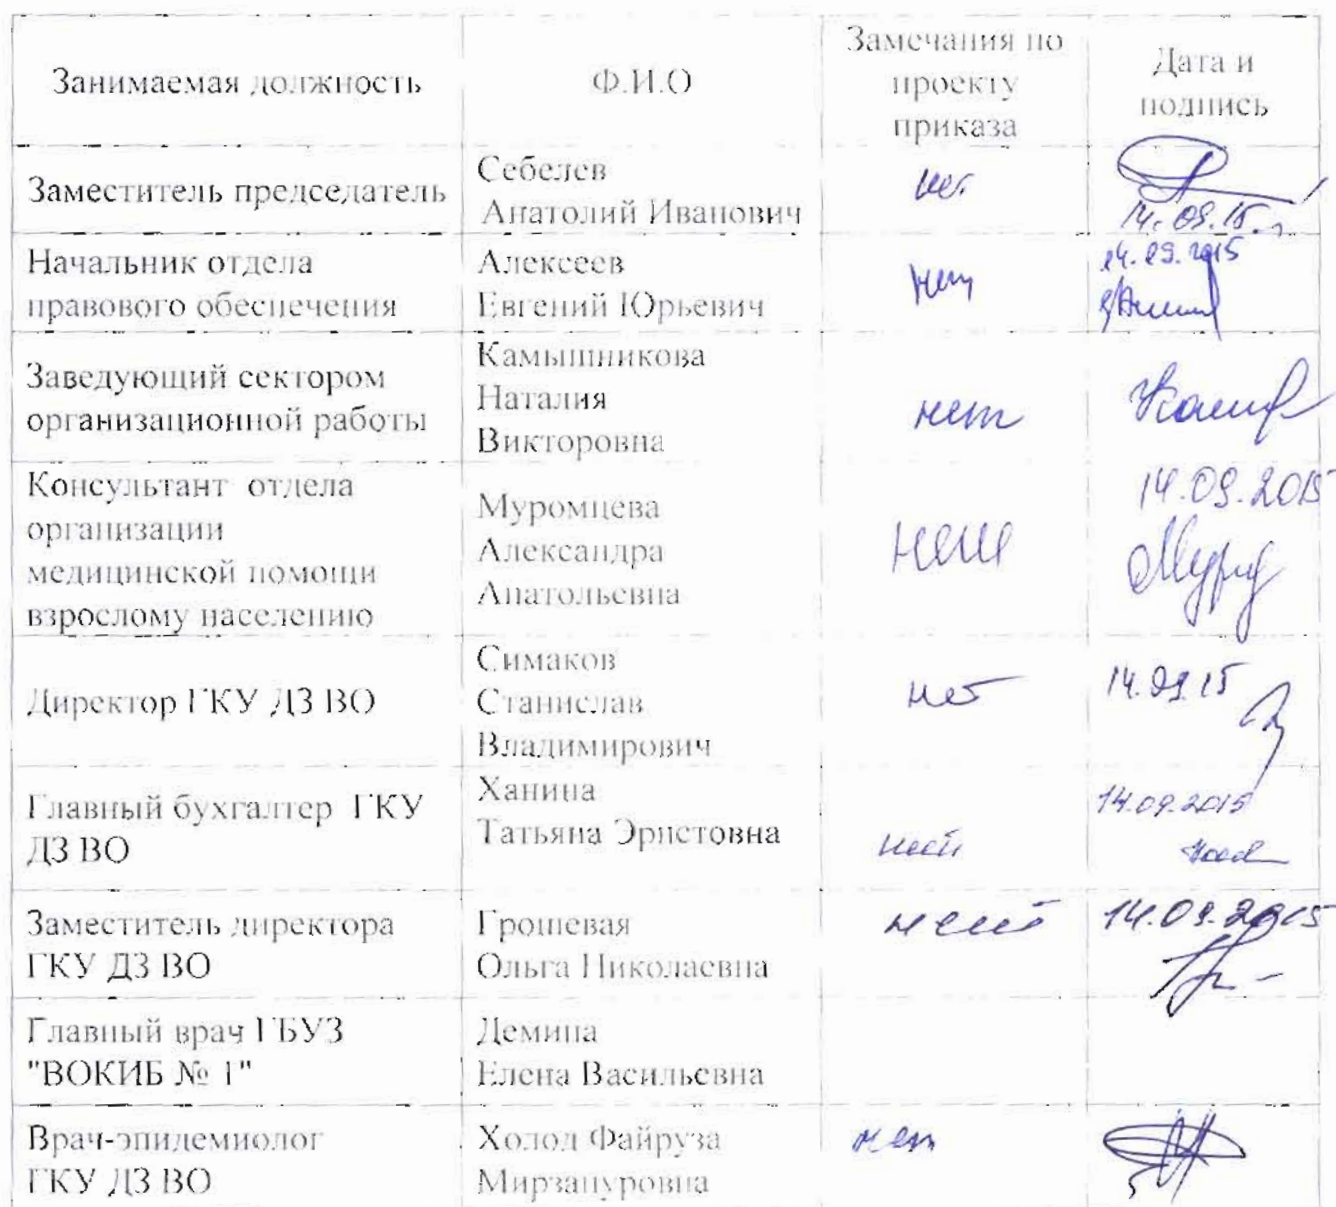 Занимаемая должность
Ф.И.О
Замечания по
проекту
приказа
Дата и
подпись
Заместитель председатель
Себелев
Анатолий Иванович
нет
14.09.15г.
Начальник отдела
правового обеспечения
Алексеев
Евгений Юрьевич
нет
14.09.2015
Заведующий сектором
организационной работы
Камышникова
Наталия
Викторовна
нет
Консультант отдела
организации
медицинской помощи
взрослому населению
Муромцева
Александра
Анатольевна
нет
14.09.2015
Директор ГКУ ДЗ ВО
Симаков
Станислав
Владимирович
нет
14.09.15
Главный бухгалтер ГКУ
ДЗ ВО
Ханина
Татьяна Эрнстовна
нет
14.09.2015
Заместитель директора
ГКУ ДЗ ВО
Грошевая
Ольга Николаевна
нет
14.09.2015
Главный врач ГБУЗ
"ВОКИБ № 1"
Демина
Елена Васильевна
Врач-эпидемиолог
ГКУ ДЗ ВО
Холод Файруза
Мирзануровна
нет